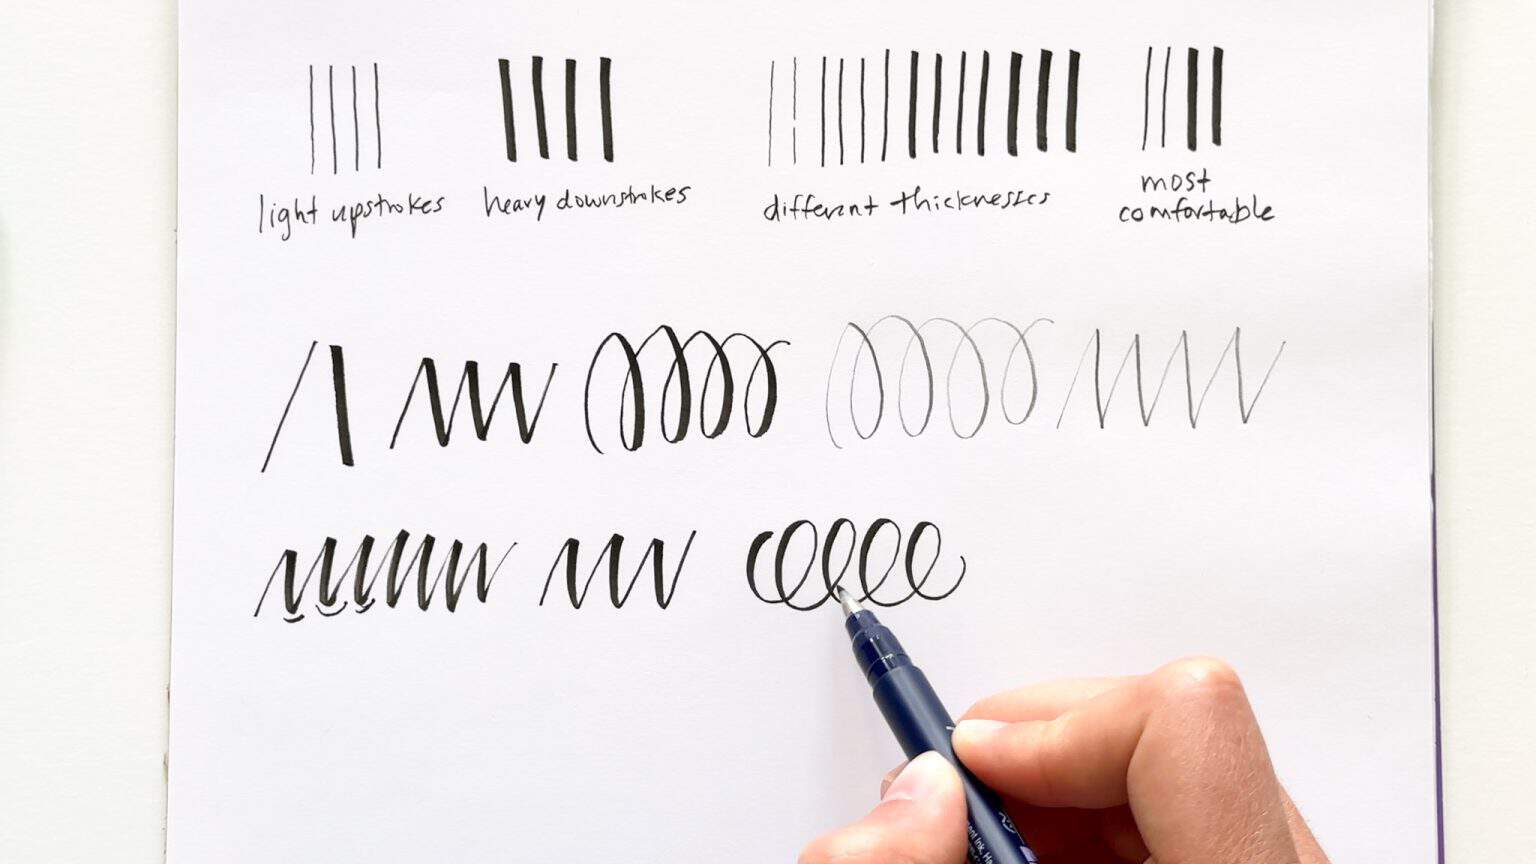 light upstrokes
heavy downstrokes
different thicknesses
most
comfortable